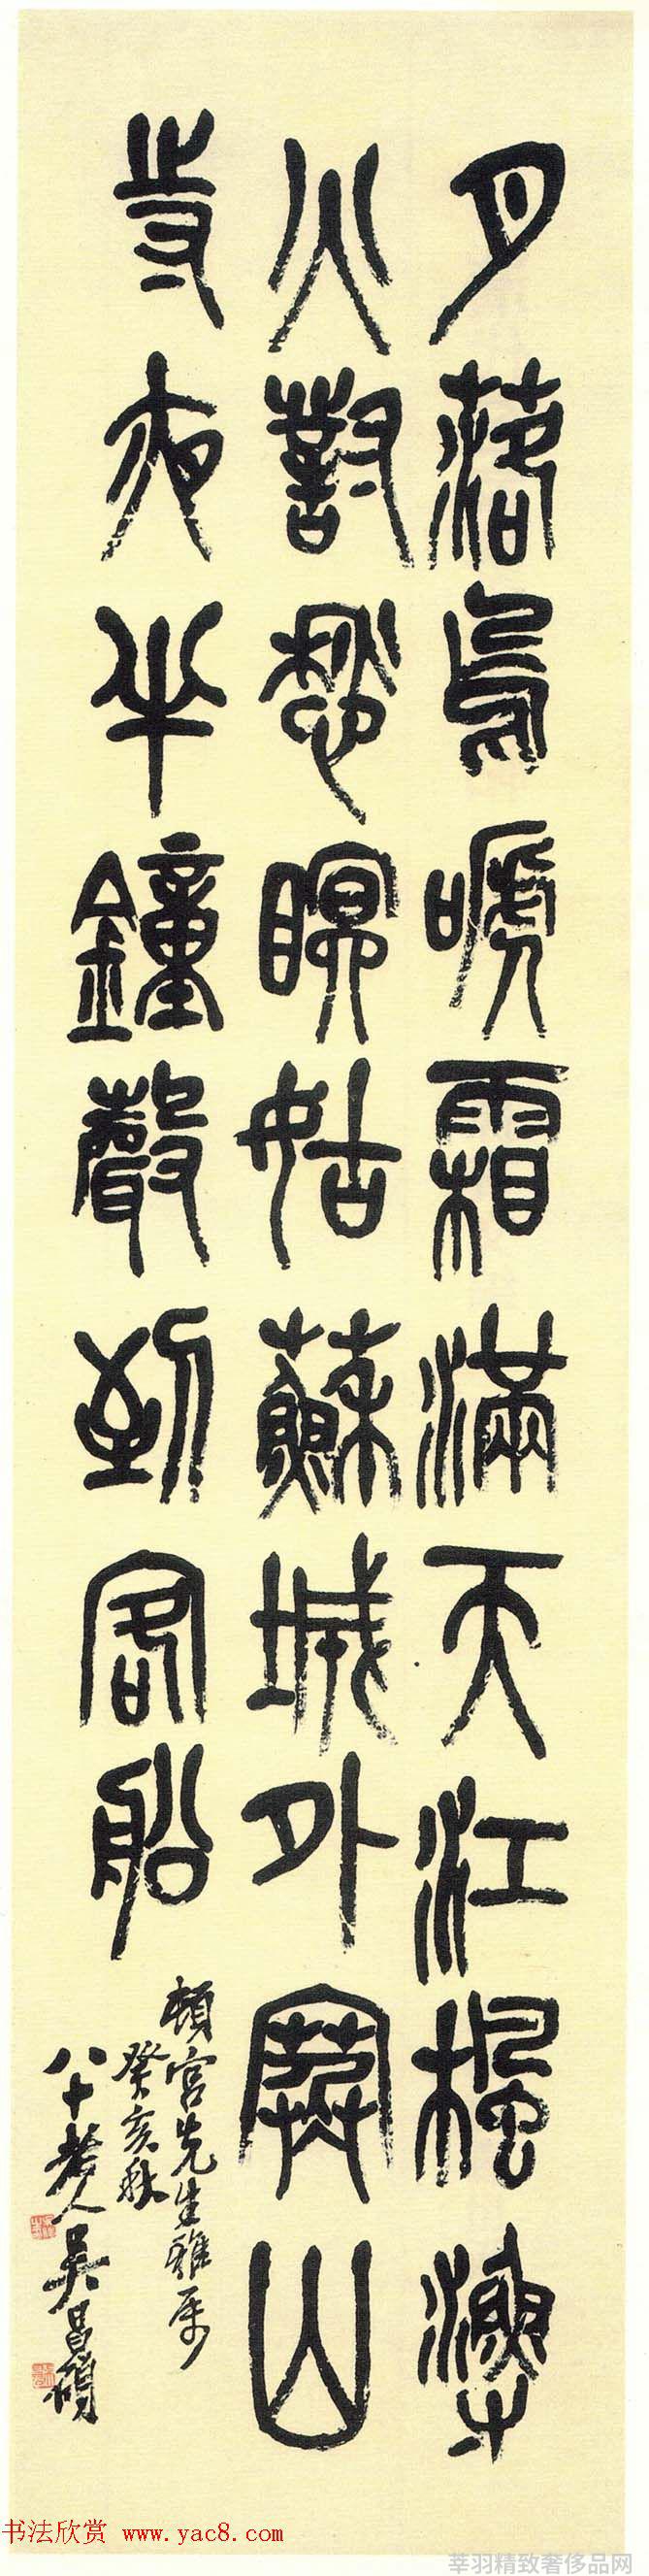 月落烏嗁霜滿天江楓漁
火對愁瞑姑蘇城外寒山
寺夜半鐘聲到客船
頓宮先生雅屬
癸亥秋
八十老人吳昌碩
书法欣赏 www.yac8.com
莘羽精致奢侈品网